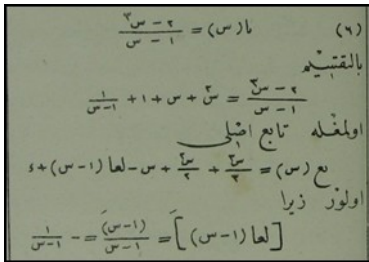 (٦) ںا(س) = (٢ − س٣) / (١ − س)
بالتقسيم
(٢ − س٣) / (١ − س) = س٢ + س + ١ + ١ / (١ − س)
اولمغله تابع اصلى
ع (س) = س٣ / ٣ + س٢ / ٢ + س − لعا (١ − س) + ء
اولور زيرا
[لعا (١ − س)]َ = (١ − س)َ / (١ − س) = − ١ / (١ − س)